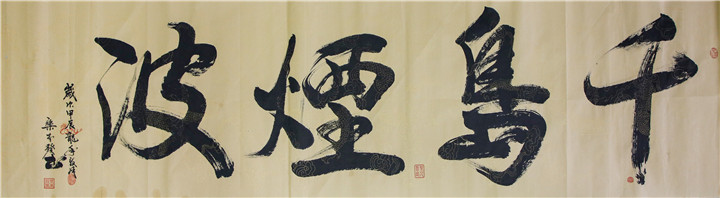 千島煙波
歲次甲辰龍年